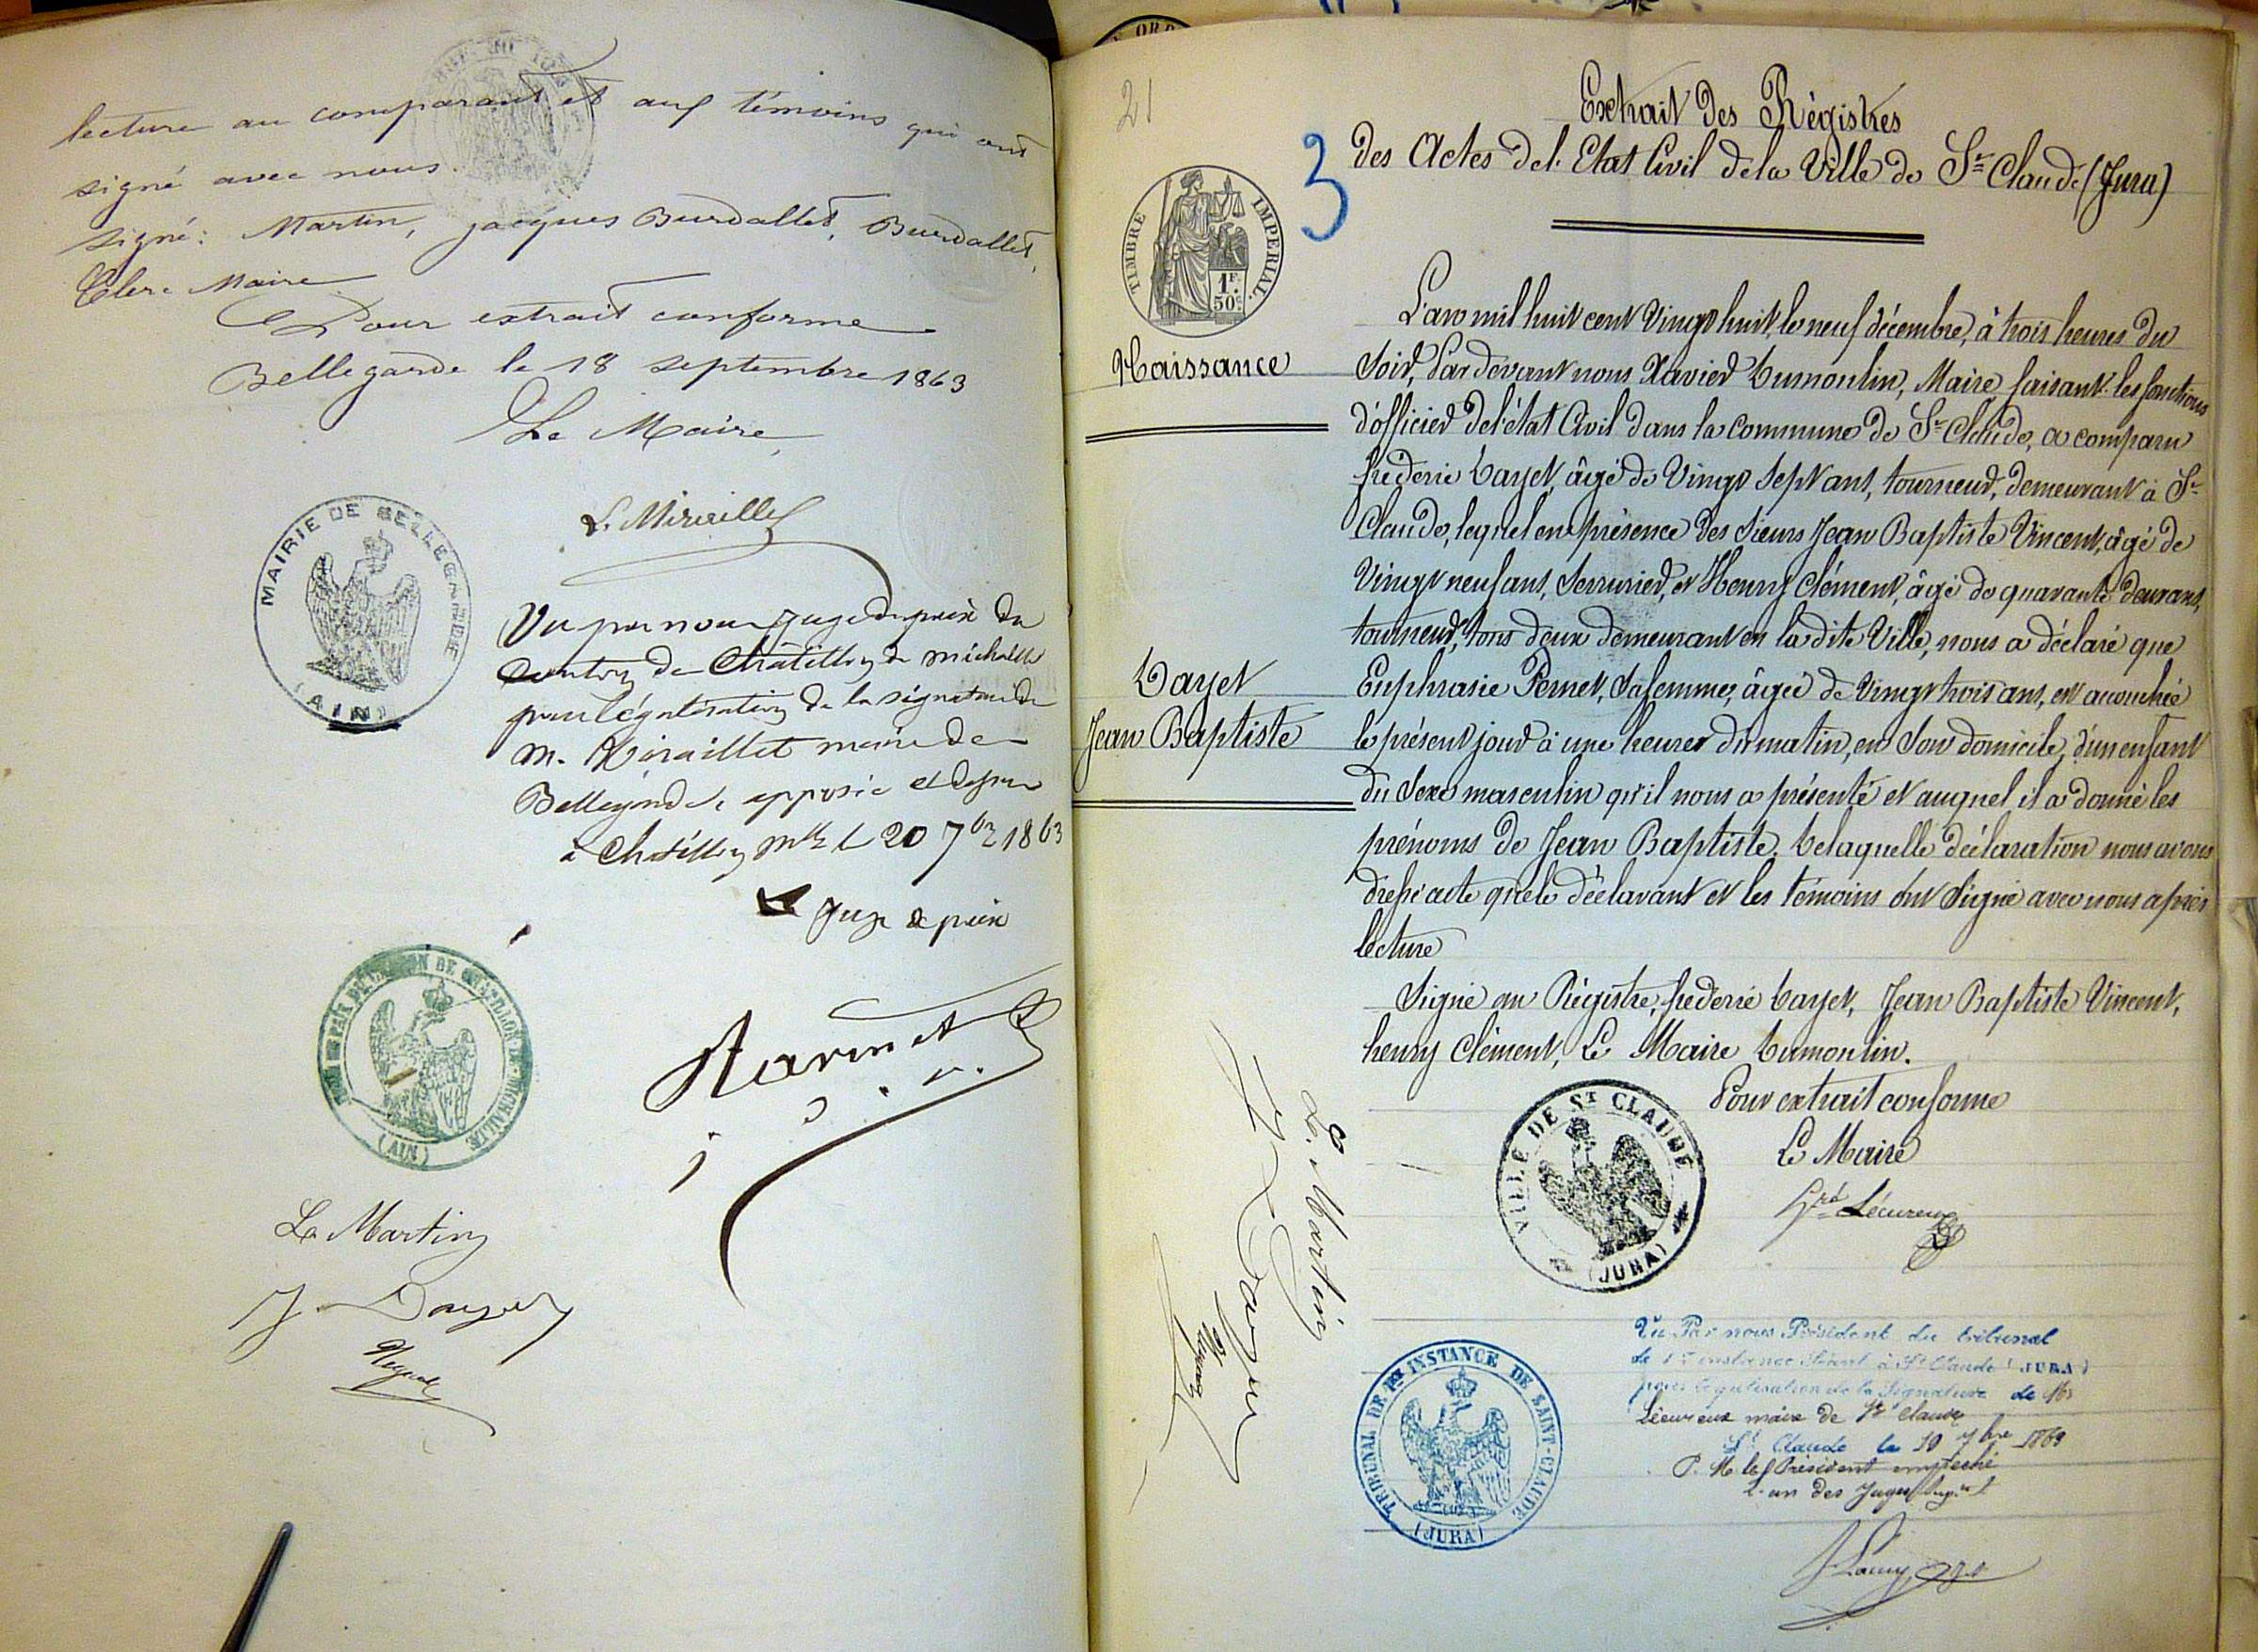 lecture au comparant et aux témoins qui ont
signé avec nous.
signé: Martin, Jacques Burdallet, Burdallet,
Clerc Maire
Pour extrait conforme
Bellegarde le 18 septembre 1863
Le Maire,
MAIRIE DE BELLEGARDE
(AIN)
Vu par nous juge de paix du
canton de Châtillon de michaille
pour légalisation de la signature de
M. maire de
Bellegarde, apposée et dessus
à Châtillon mlle le 20 7bre 1863
Le Juge de paix
DE CHATILLON-DE-MICHAILLE
(AIN)
L. Martin
J. Dayet
21
3
Extrait des Régistres
des Actes de l'Etat Civil de la Ville de St Claude (Jura)
TIMBRE IMPERIAL
1F.
50c.
Naissance
Dayet
Jean Baptiste
L'an mil huit cent Vingt huit, le neuf décembre, à trois heures du
Soir, Par devant nous Xavier Dumoulin, Maire, faisant les fonctions
d'officier de l'état Civil dans la commune de St Claude, a comparu
frédéric Dayet, âgé de Vingt Sept ans, tourneur, demeurant à St
Claude, lequel en présence des Sieurs Jean Baptiste Vincent, âgé de
Vingt neuf ans, Serrurier, et Henry Clément, âgé de quarante deux ans,
tourneur, tous deux demeurant en la dite Ville, nous a déclaré que
Euphrasie Pernet, Sa femme, âgée de Vingt trois ans, est accouchée
le présent jour à une heure du matin, en Son domicile, d'un enfant
du Sexe masculin qu'il nous a présenté et auquel il a donné les
prénoms de Jean Baptiste. De laquelle déclaration nous avons
dressé acte que le déclarant et les témoins ont Signé avec nous après
lecture
Signé au Régistre, frédéric Dayet, Jean Baptiste Vincent,
henry Clément, Le Maire Dumoulin.
Pour extrait conforme
Le Maire
VILLE DE ST CLAUDE
(JURA)
Lécureux
L. Martin
J. Dayet
TRIBUNAL DE 1ERE INSTANCE DE SAINT-CLAUDE
(JURA)
Vu Par nous Président du tribunal
de 1re instance séant à St Claude (JURA)
pour légalisation de la Signature de Mr
Lécureux maire de St Claude
St Claude le 10 7bre 1863
P. M. le Président empêché
L'un des Juges